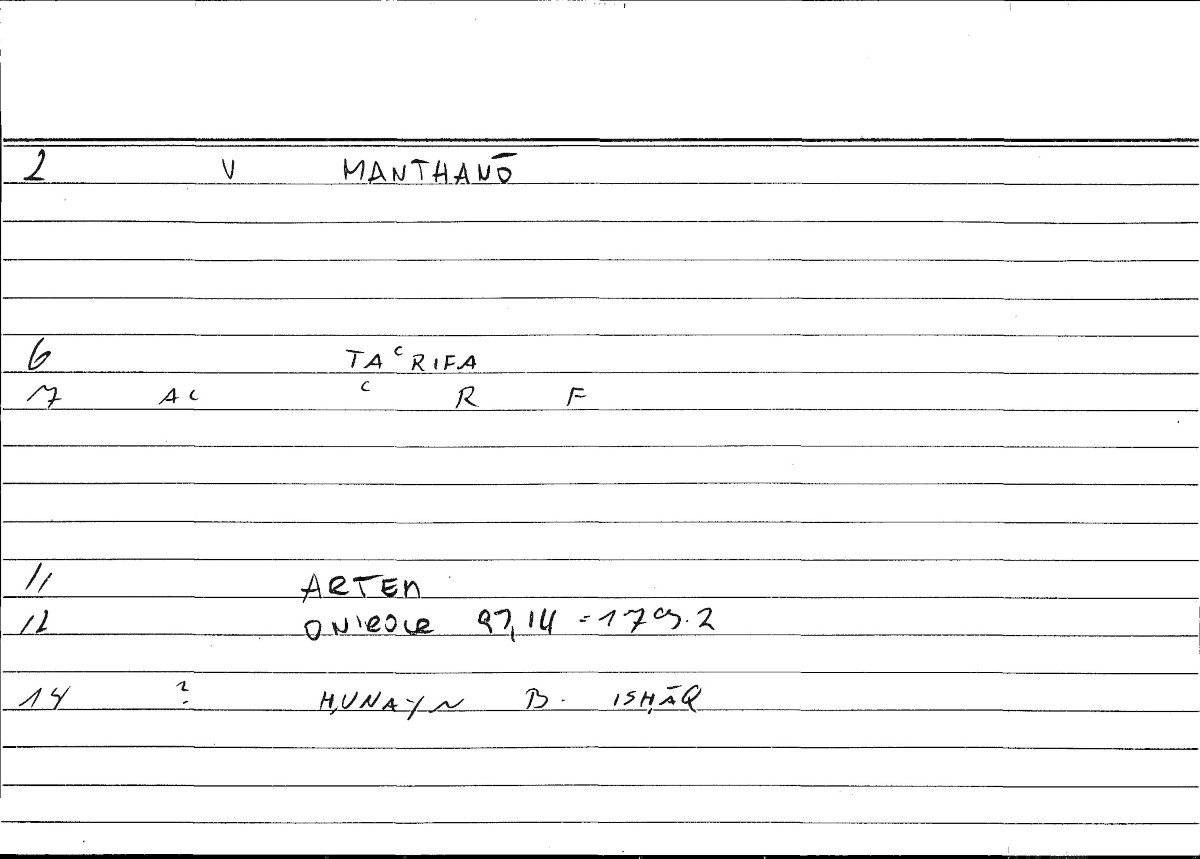 2 V MANTHANŌ
6 TAᶜRIFA
7 AC ᶜ R F
11 ARTEM
12 ONIROCR 97,14 = 179.2
14 ? ḤUNAYN B. ISḤĀQ